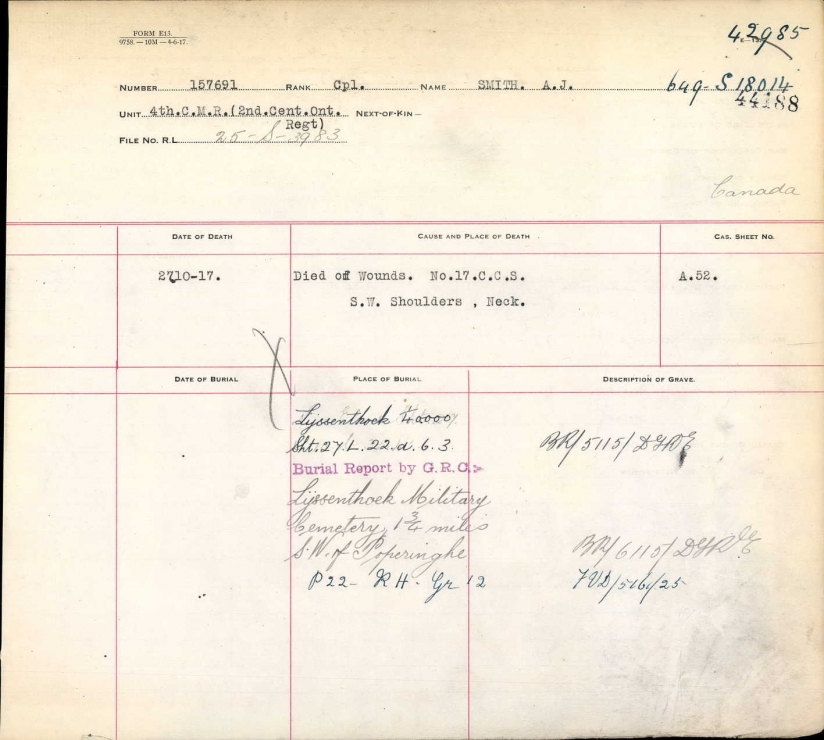 FORM E13.
9758. — 10M — 4-6-17.
42985
NUMBER 157691 RANK Cpl. NAME SMITH. A.J.
649-S 18014
44188
UNIT 4th.C.M.R.(2nd.Cent.Ont. Regt) NEXT-OF-KIN —
FILE NO. R.L. 25-S-3983
Canada
DATE OF DEATH CAUSE AND PLACE OF DEATH CAS. SHEET NO.
2710-17. Died of Wounds. No.17.C.C.S. A.52.
S.W. Shoulders , Neck.
DATE OF BURIAL PLACE OF BURIAL DESCRIPTION OF GRAVE.
Lijssenthoek 1/40000
Sht. 27. L. 22. d. 6. 3. BR/5115/DGR&E
Burial Report by G.R.C.
Lijssenthoek Military
Cemetery, 1 3/4 miles
S.W. of Poperinghe BR/6115/DGR&E
P22- R H - Gr 12